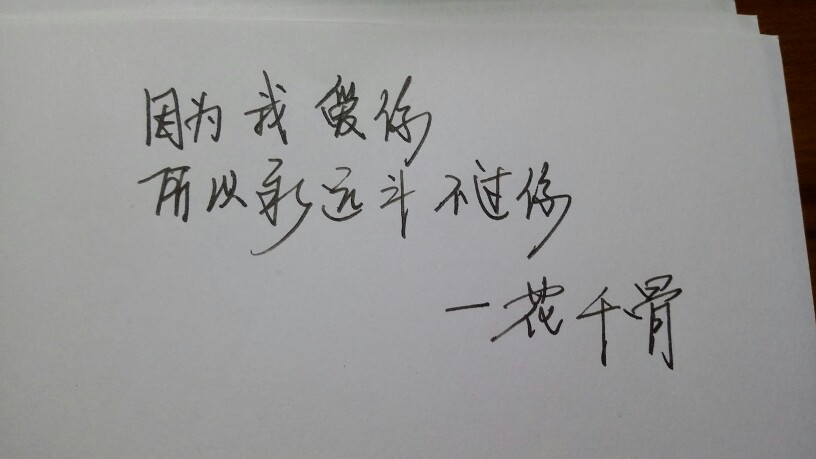 因为我爱你
所以永远斗不过你
一花千骨